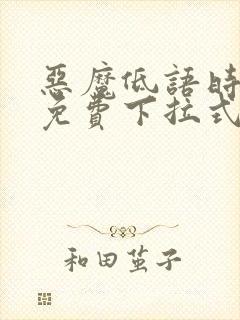 惡魔低語時
免費下拉式
和田茧子